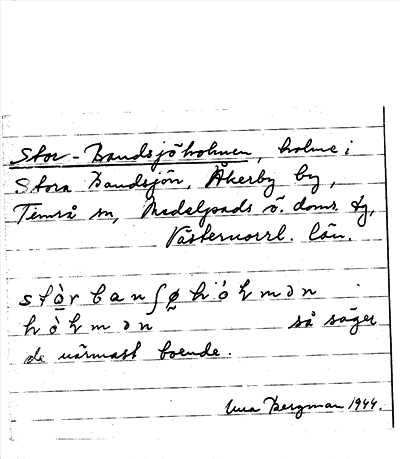 Stor-Bandsjöholmen, holme i
Stora Bandsjön, Åkerby by,
Timrå sn, Medelpads ö. doms. dg,
Västernorrl. län.
stò̱r banʃø̰hò̀ɫmən
hò̀ɫmən så säger
de närmast boende.
Bergman 1944.